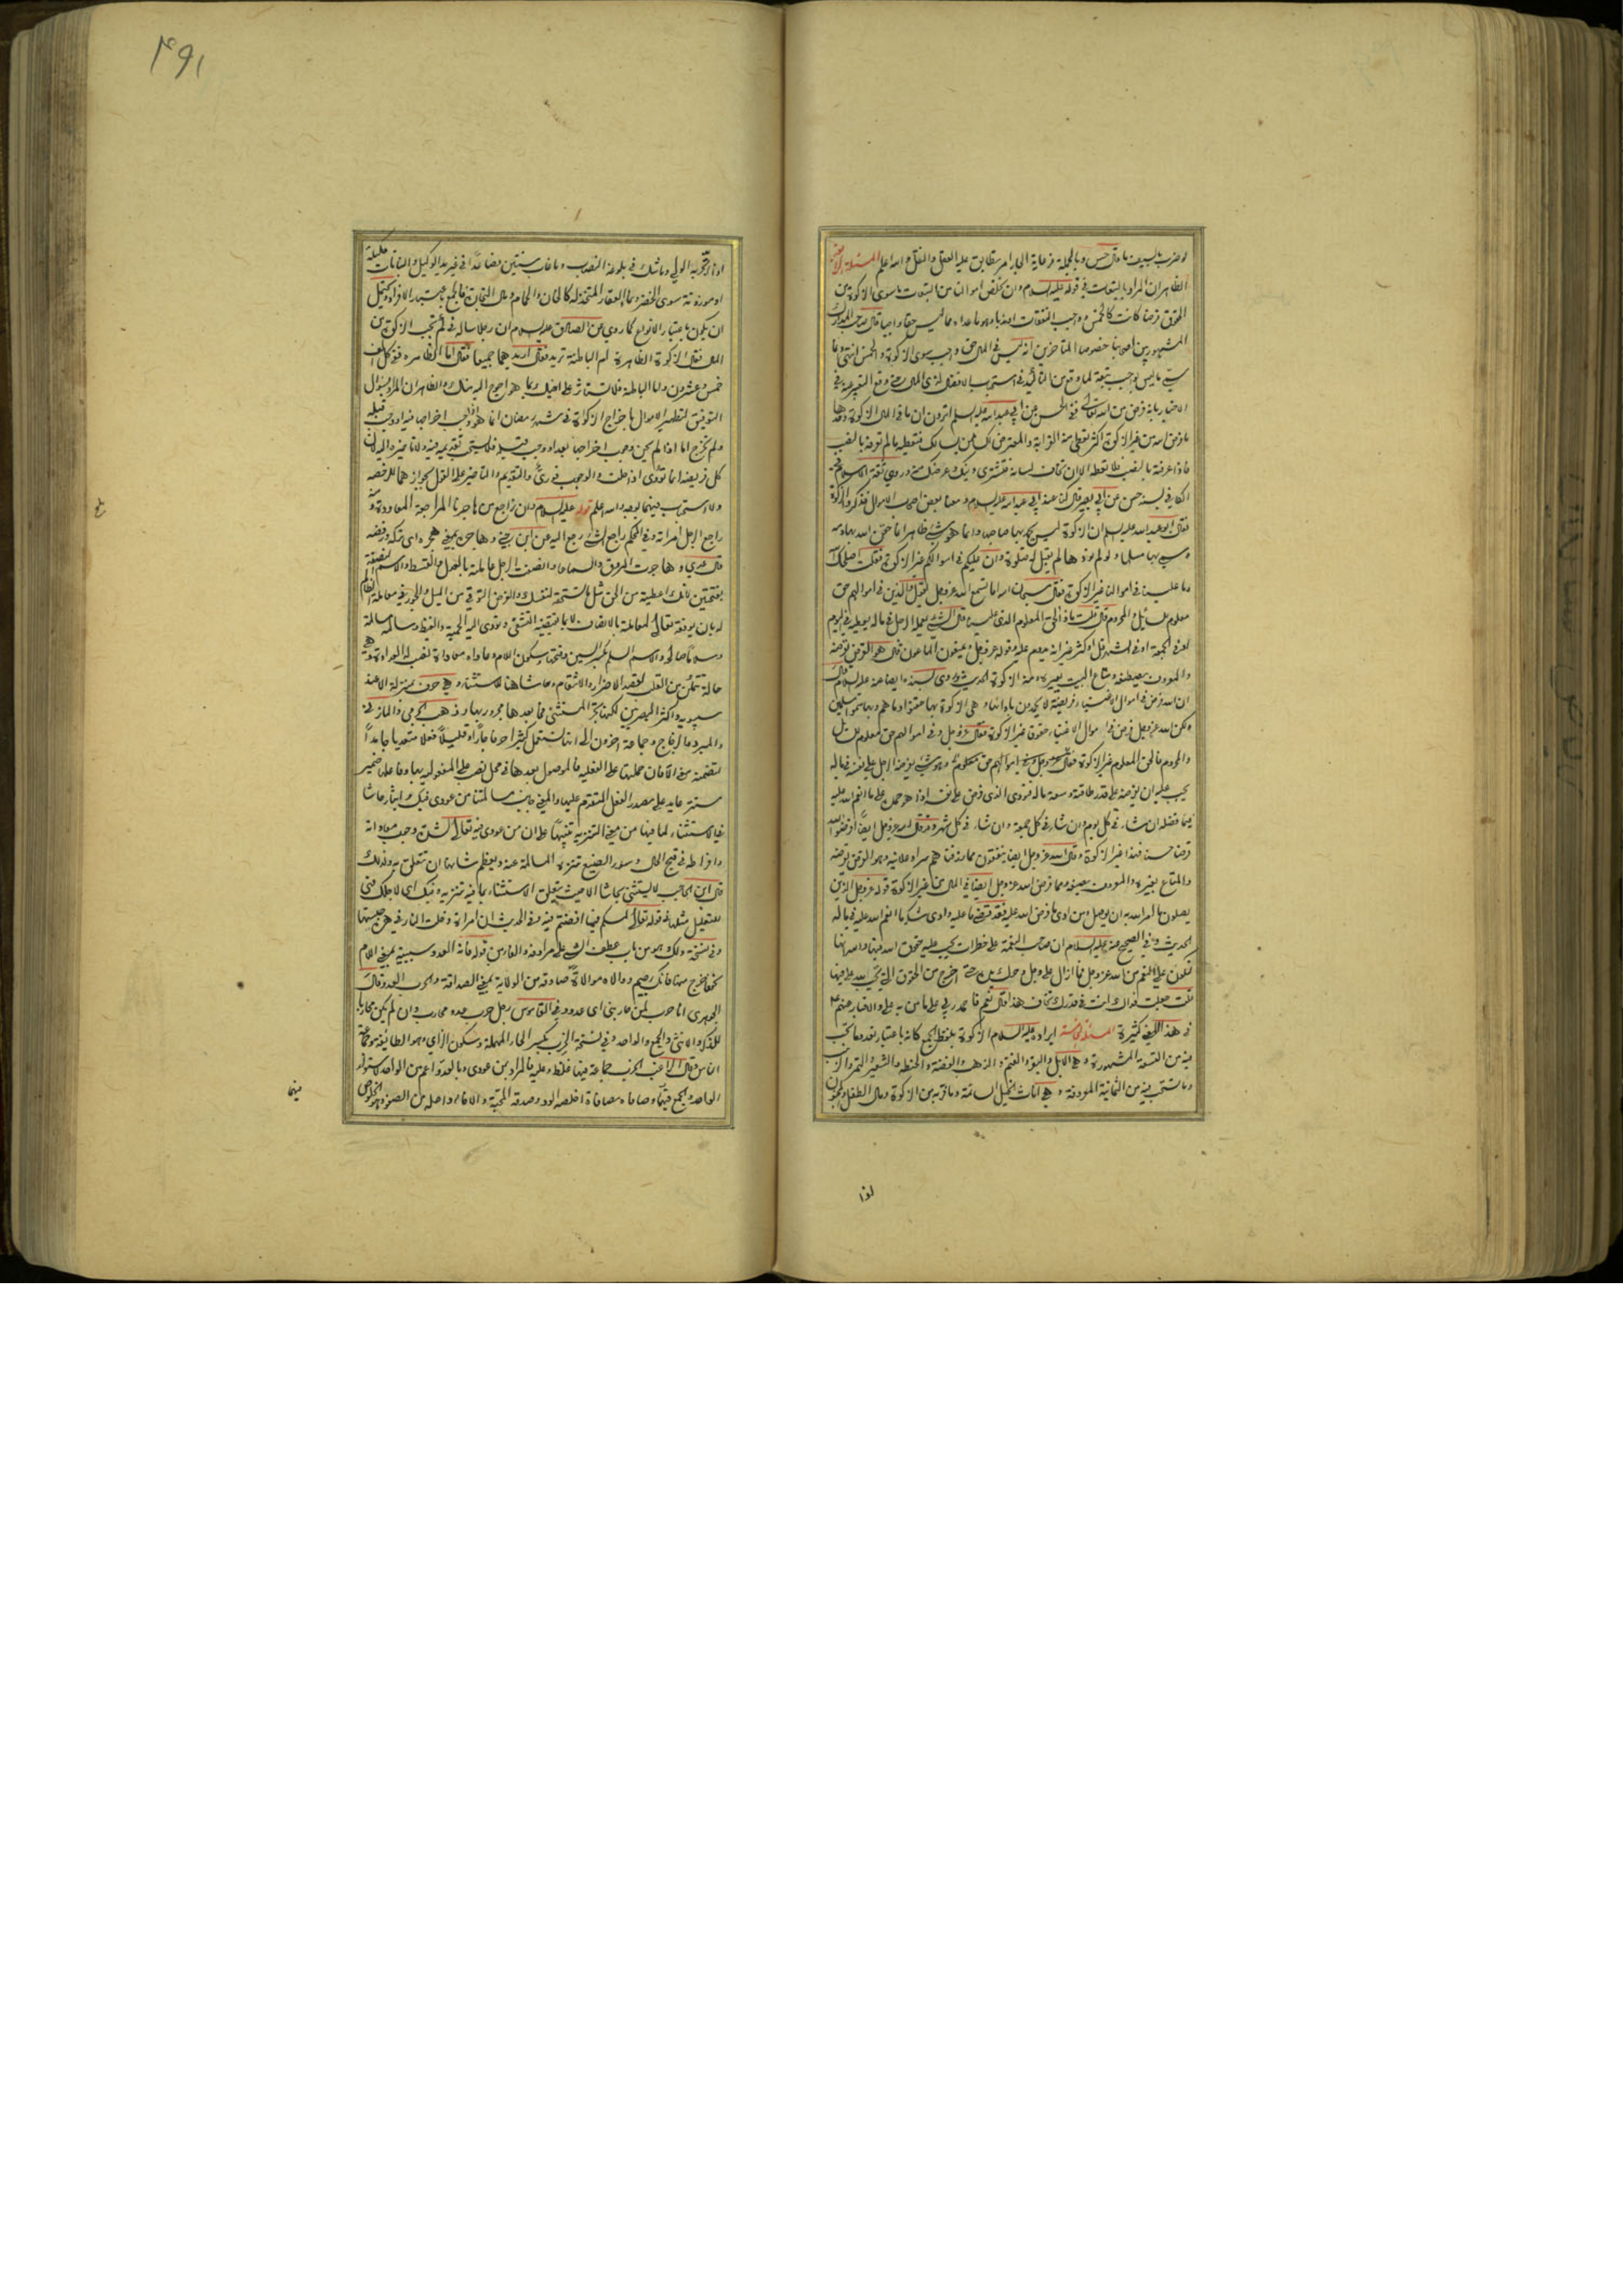 لو ضرب بالسيف ما قال حسن وبالجملة فرعاية الجار امر يتطابق عليه العقل والنقل والله اعلم المسئلة الرابعة
الظاهر ان المراد بالتبعات في قوله عليه السلام وان نخلص اموالنا من التبعات ما سوى الزكوة من
الحقوق فرضا كانت كالخمس وواجب النفقات او ندبا وهو ما عداه مما ليس حقا واجبا قال صاحب المدارك
المشهور بين اصحابنا خصوصا المتاخرين انه ليس في المال حق واجب سوى الزكوة والخمس انتهى
الاخبار بانه فرض من الله تعالى ففي الحسن عن ابي عبد الله عليه السلم اترون ان ما في المال الزكوة وحدها
ما فرض الله من غير الزكوة اكثر تعطي منه القرابة والمعترض لك ممن يسالك فتعطيه ما لم تعرفه بالنصب
فاذا عرفته بالنصب فلا تعطه الا ان تخاف لسانه فتشتري دينك وعرضك منه وروى ثقة الاسلام
في الكافي بسند حسن عن ابي بصير قال كنا عند ابي عبد الله عليه السلام ومعنا بعض اصحاب الاموال فذكروا الزكوة
فقال ابو عبد الله عليه السلم ان الزكوة ليس يحمد بها صاحبها وانما هو شيء ظاهر انما حقن الله بها دمه
وسمي بها مسلما ولو لم يؤدها لم يقبل له صلوة وان عليكم في اموالكم غير الزكوة فقلت اصلحك الله
وما علينا في اموالنا غير الزكوة فقال سبحان الله اما تسمع الله عز وجل يقول والذين في اموالهم حق
معلوم للسائل والمحروم قال قلت ماذا الحق المعلوم الذي علينا قال هو الشيء يعمله الرجل في ماله يعطيه في اليوم
او في الجمعة او في الشهر قل او كثر غير انه يدوم عليه وقوله عز وجل ويمنعون الماعون قال هو القرض يقرضه
والمعروف يصطنعه ومتاع البيت يعيره ومنه الزكوة الحديث وروى بسنده ايضا عنه عليه السلام قال
ان الله فرض في اموال الاغنياء فريضة لا يحمدون باداءها وهي الزكوة بها حقنوا دماءهم وبها سموا مسلمين
ولكن الله عز وجل فرض في اموال الاغنياء حقوق غير الزكوة فقال عز وجل وفي اموالهم حق معلوم للسائل
والمحروم فالحق المعلوم غير الزكوة وهو شيء يفرضه الرجل على نفسه في ماله
يجب عليه ان يفرضه على قدر طاقته وسعة ماله فيؤدي الذي فرض على نفسه
ان شاء في كل يوم وان شاء في كل جمعة وان شاء في كل شهر وقد قال الله عز وجل ايضا اقرضوا الله
قرضا حسنا فهذا غير الزكوة وقال الله عز وجل ايضا ينفقون مما رزقناهم سرا وعلانية وهو القرض يقرضه
والمتاع يعيره والمعروف يصنعه ومما فرض الله عز وجل ايضا في المال من غير الزكوة قوله عز وجل الذين
يصلون ما امر الله به ان يوصل ومن ادى ما فرض الله عليه فقد قضى ما عليه وادى شكر ما انعم الله عليه في ماله
الحديث وفي الصحيح عنه عليه السلام ان صاحب النعمة على خطر انه يجب عليه حقوق الله فيها والله انها
لتكون علي النعم من الله عز وجل فما ازال على وجل وحرك يده حتى اخرج من الحقوق التي تجب لله علي فيها
قلت جعلت فداك انت في قدرك تخاف هذا قال نعم فاحمد ربي على ما من به علي والاخبار عنهم
في هذا المعنى كثيرة المسئلة الخامسة ايراده عليه السلام الزكوة بلفظ الجمع كانه باعتبار تعدد ما تجب
فيه من التسعة المشهورة وهي الابل والبقر والغنم والذهب والفضة والحنطة والشعير والتمر والزبيب
وما تستحب فيه من الثمانية المعروفة وهي اناث الخيل السائمة ومال الطفل والمجنون
اذا
١٩٤
اذا اتجر به الولي وما شك في بلوغه النصاب وما غاب سنتين فصاعدا في غير يد الوكيل والنباتات مكيلة
او موزونة سوى الخضر ونماء العقار المتخذ له كالخان والحمام ومال التجارة فالجمع باعتبار الافراد ويحتمل
ان يكون باعتبار الانواع كما روي عن الصادق عليه السلام ان رجلا ساله في كم تجب الزكوة من
المال فقال الزكوة الظاهرة ام الباطنة تريد فقال اريدهما جميعا فقال اما الظاهرة ففي كل الف
خمس وعشرون واما الباطنة فلا تستاثر على اخيك بما هو احوج اليه منك والظاهر ان المراد بسؤال
التوفيق لتطهير الاموال باخراج الزكوات في شهر رمضان انما هو اذا وجب اخراجها فيه او وجب قبله
ولم تخرج اما اذا لم يحن وجوب اخراجها بعد
كل فريضة انما تؤدى اذا حلت والوجوب فوري والتقديم والتاخير على القول بجوازهما للرخصة
والاستحباب فيهما بوجه والله اعلم قوله عليه السلام وان نراجع من هاجرنا المراجعة المعاودة
راجع الرجل امراته وفي المحكم راجع الشيء رجع اليه عن ابن جني وهاجره بمعنى هجره اي تركه ورفضه
بفتحتين لانك اعطيته من الحق مثل ما تستحقه لنفسك والغرض التوقي من الميل والجور في معاملة الظالم
له بان يوفقه تعالى لمعاملته بالانصاف لا بما يقتضيه التشفي ويؤدي اليه الحمية والغيظ وسالمه مسالمة
وسلاما صالحه والاسم السلم بكسر السين وفتحها وسكون اللام وعاداه معاداة نصب له العداوة وهي
حالة تتمكن من القلب لقصد الاضرار والانتقام وحاشا هنا للاستثناء وهي حرف بمنزلة الا عند
سيبويه واكثر البصريين لكنها تجر المستثنى فما بعدها مجرور بها وذهب الجرمي والمازني
والمبرد والزجاج وجماعة اخرون الى انها تستعمل كثيرا حرفا جارا وقليلا فعلا متعديا جامدا
لتضمنه معنى الا فان حملتها على الفعلية فالموصول بعدها في محل نصب على المفعولية بها وفاعلها ضمير
مستتر عايد على مصدر الفعل المتقدم عليها والمعنى جانبت مسالمتنا من عودي فيك وايثار حاشا
في الاستثناء لما فيها من معنى التنزيه تنبيها على ان من عودي فيه تعالى
وافراطه في قبح الحال وسوء الصنيع تنزه المسالمة عنه ويعظم شانها ان تتعلق به ولذلك
قال ابن الحاجب لا يستثنى بحاشا الا حيث يتعلق الاستثناء بما فيه تنزيه وفيك اي لاجلك ففي
للتعليل مثلها في قوله تعالى لمسكم فيما افضتم فيه وفي الحديث ان امراة دخلت النار في هرة حبستها
وفي نسخة ولك وهو من باب عطف الشيء على مرادفه والفاء من قوله فانه العدو سببية بمعنى اللام
نحو اخرج منها فانك رجيم ووالاه موالاة صادقه من الولاية بمعنى الصداقة والحرب العدو قال
الجوهري انا حرب لمن حاربني اي عدو وفي القاموس رجل حرب عدو محارب وان لم يكن محاربا
للذكر والانثى والجمع والواحد وفي نسخة الحزب بكسر الحاء المهملة وسكون الزاي وهو الطائفة وجماعة
الناس وقال الراغب الحزب جماعة فيها غلظ وعليه فالمراد بمن عودي وبالعدو اعم من الواحد لاستواء
الواحد والجمع فيهما وصافاه مصافاة اخلصه الود وصدقه المحبة والاخاء واصله من الصفو وهو الخلوص
فيهما